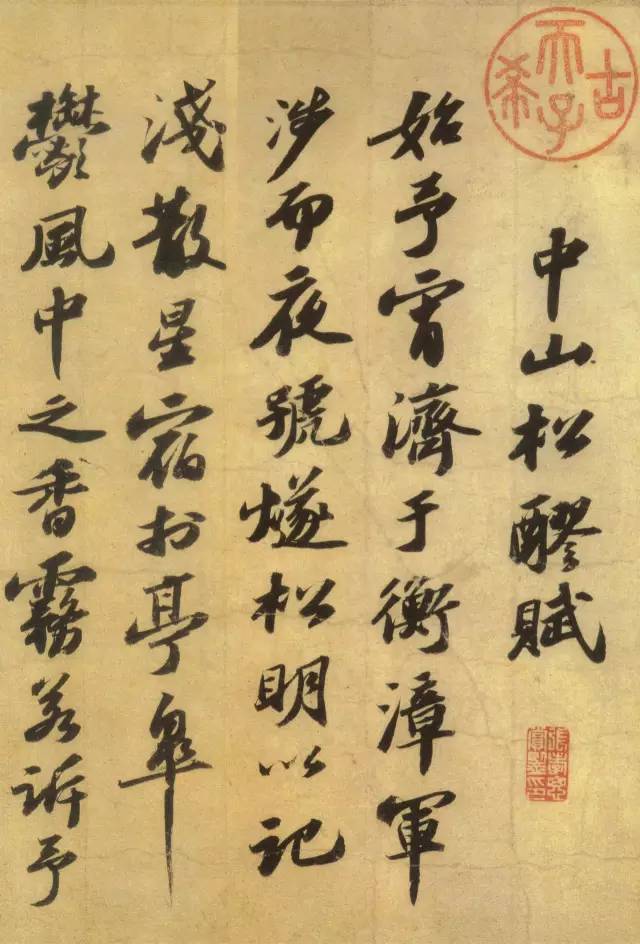 古希天子
中山松醪賦
張孝思賞鑒印
始予宵濟于衡漳軍
涉而夜號燧松明以記
淺散星宿於亭皋
鬱風中之香霧若訴予